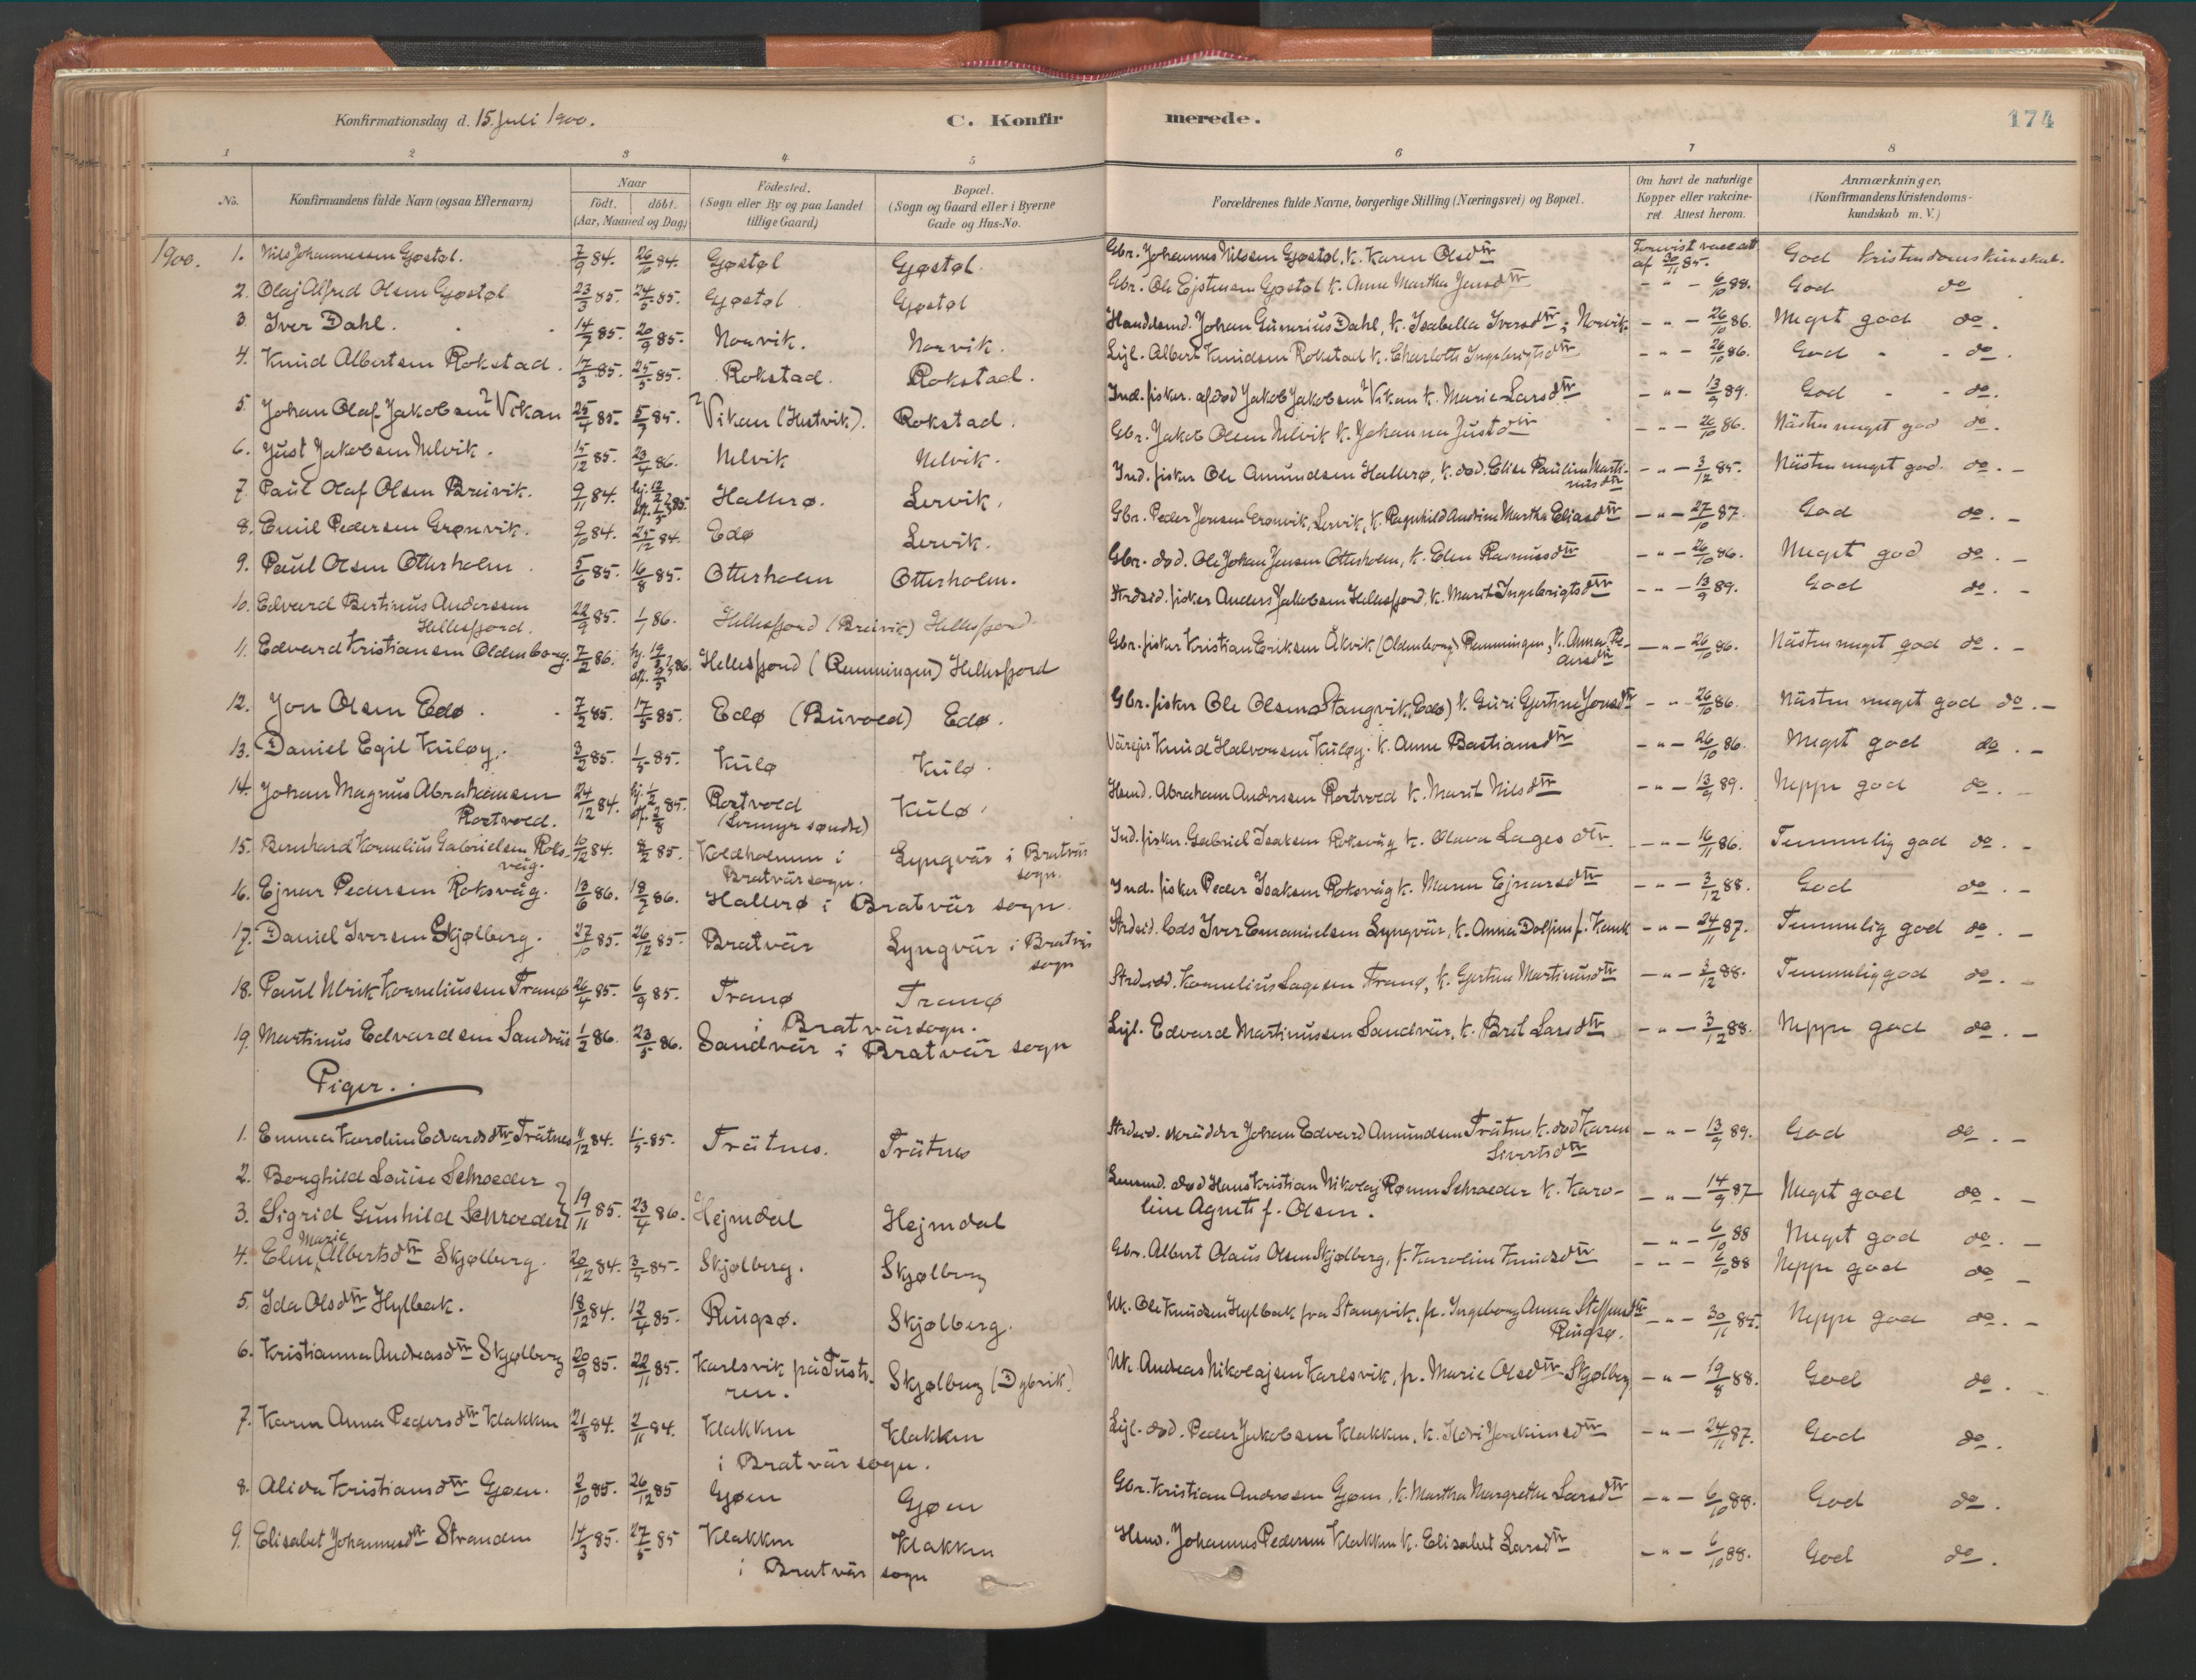 Konfirmationsdag d. 15. Juli 1900.
C. Konfirmerede.
174
1 2 3 4 5 6 7 8
No.
Konfirmandens fulde Navn (ogsaa Efternavn)
Naar
født. døbt.
(Aar, Maaned og Dag)
Födested.
(Sogn eller By og paa Landet
tillige Gaard)
Bopæl.
(Sogn og Gaard eller i Byerne
Gade og Hus-No.
Forældrenes fulde Navne, borgerlige Stilling (Næringsvei) og Bopæl.
Om havt de naturlige
Kopper eller vakcine-
ret. Attest herom.
Anmærkninger,
(Konfirmandens Kristendoms-
kundskab m. V.)
1900. 1. Nils Johannessen Gjøstøl. 7/9 84. 26/10 84. Gjøstøl Gjøstøl. Gbr. Johannes Nilssen Gjøstøl, k. Karen Olsdtr Forevist vacc.att. af 30/11 85. God kristendomskunskab.
2. Olaf Alfred Olsen Gjøstøl 23/3 85. 24/5 85. Gjøstøl Gjøstøl Gbr. Ole Ejstensen Gjøstøl k. Anne Martha Jensdtr - " - 6/10 88. God do.
3. Iver Dahl. 14/7 85. 20/9 85. Norvik. Norvik. Handelsmd. Johan Gunerius Dahl, k. Isabella Iversdtr; Norvik. - " - 26/10 86. Meget god do.
4. Knud Albertsen Rokstad. 17/3 85. 25/5 85. Rokstad. Rokstad. Lejl. Albert Knudsen Rokstad k. Charlotte Ingebrigtsdtr - " - 26/10 86. God - - do.
5. Johan Olaf Jakobsen Vikan 25/4 85. 5/7 85. Vikan (Hustvik). Rokstad. Ind. fisker. afdød Jakob Jakobsen Vikan k. Marie Larsdtr - " - 13/9 89. God - - do.
6. Just Jakobsen Nelvik. 15/12 85. 23/4 86. Nelvik Nelvik. Gbr. Jakob Olsen Nelvik k. Johanna Justdtr - " - 26/10 86. Nästen meget god do.
7. Paul Olaf Olsen Breivik. 9/11 84. hj. 12/2 df. 7/5 85. Hallerø. Lervik. Ind. fisker Ole Amundsen Hallerø, k. død. Elise Pauline Marti-
nusdtr - " - 3/12 85. Nästen meget god. do. -
8. Emil Pedersen Grønvik. 9/10 84. 25/12 84. Edø Lervik. Gbr. Peder Jensen Grønvik, Lervik, k. Ragnhild Andrine Martha Eliasdtr - " - 27/10 87. God do. -
9. Paul Olsen Otterholm. 5/6 85. 16/8 85. Otterholm Otterholm. Gbr. død. Ole Johan Jensen Otterholm, k. Elen Rasmusdtr - " - 26/10 86. Meget god do. -
10. Edvard Bertinus Anderssen
Hellesfjord. 22/9 85. 1/1 86. Hellesfjord (Breivik) Hellesfjord Strdsid. fisker Anders Jakobsen Hellesfjord, k. Marit Ingebrigtsdtr - " - 13/9 89. God do. -
11. Edvard Kristiansen Oldenborg. 7/2 86. Hellesfjord (Remmingen) Hellesfjord Gbr. fisker Kristian Eriksen Åkvik (Oldenborg) Remmingen, k. Anne Pe-
dersdtr - " - 26/10 86. Nästen meget god do. -
12. Jon Olsen Edø. 7/2 85. 17/5 85. Edø (Buvold) Edø. Gbr. fisker Ole Olsen Stangvik, (Edø) k. Guri Gjertine Jonsdtr - " - 26/10 86. Nästen meget god do. -
13. Daniel Egil Kuløy. 3/2 85. 1/5 85. Kulø Kulø. Värejer Knud Halvorsen Kuløy. k. Anne Bastiansdtr - " - 26/10 86. Meget god do. -
14. Johan Magnus Abrahamsen
Rostvold. 24/12 84. hj. 1/2 df. 2/8 85. Rostvold
(Lermyr søndre) Kulø. Hsmd. Abraham Anderssen Rostvold k. Marit Nilsdtr - " - 13/9 89. Neppe god do. -
15. Bernhard Kornelius Gabrielsen Roks-
våg. 10/12 84. 8/2 85. Koldholmen i
Bratvär sogn. Lyngvär i Bratvär
sogn. Ind. fisker. Gabriel Isaksen Roksvåg k. Olava Lagesdtr - " - 16/11 86. Temmelig god do. -
16. Ejnar Pedersen Roksvåg. 13/6 86. 18/7 86. Hallerø i Bratvär sogn. Ind. fisker Peder Isaksen Roksvåg k. Maren Ejnarsdtr - " - 3/12 88. God do. -
17. Daniel Iversen Skjølberg. 27/10 85. 26/12 85. Bratvär Lyngvär i Bratvär
sogn Strdsid. Lods Iver Emanielsen Lyngvär, k. Anna Dolfine f. Kank - " - 24/11 87. Temmelig god do. -
18. Paul Ulrik Korneliussen Tranø 26/4 85. 6/9 85. Tranø Tranø
i Bratvär sogn. Strdsid. Kornelius Lagesen Tranø, k. Gjertine Martinusdtr - " - 3/12 88. Temmelig god do. -
19. Martinus Edvardsen Sandvär 1/2 86. 23/5 86. Sandvär i Bratvär sogn Lejl. Edvard Martinussen Sandvär, k. Brit Larsdtr - " - 3/12 88. Neppe god do. -
Piger.
1. Emma Karoline Edvardsdtr Trätnes 11/12 84. 1/5 85. Trätnes. Trätnes Strdsid. skrädder Johan Edvard Amundsen Trätnes k. død Karen
Sivertsdtr - " - 13/9 89. God do. -
2. Borghild Louise Schroeder
3. Sigrid Gunhild Schroeder 19/11 85. 23/4 86. Hejmdal Hejmdal Lensmd. død Hans Kristian Nikolaj Rønne Schroeder k. Karo-
line Agnete f. Olsen. - " - 14/9 87 Meget god do. -
- " - 6/10 88 Meget god do. -
4. Elen Marie Albertsdtr Skjølberg. 20/12 84. 3/5 85. Skjølberg. Skjølberg Gbr. Albert Olaus Olsen Skjølberg, k. Karoline Knudsdtr - " - 6/10 88 Neppe god do. -
5. Ida Olsdtr Hylbak. 18/12 84. 12/4 85. Ringsø. Skjølberg. Uk. Ole Knudsen Hylbak fra Stangvik, p. Ingeborg Anna Steffensdtr
Ringsø. - " - 30/11 85. Neppe god do. -
6. Kristianna Andreasdtr Skjølberg 20/9 85. 22/11 85. Karlsvik på Tust-
ren. Skjølberg (Dybvik) Uk. Andreas Nikolajsen Karlsvik, p. Marie Olsdtr Skjølberg - " - 19/8 88. God do. -
7. Karen Anna Pedersdtr Klakken 21/8 84. 2/11 84. Klakken Klakken
i Bratvär sogn. Lejl. død. Peder Jakobsen Klakken, k. Ildri Joakimsdtr - " - 24/11 87. God do.
8. Alida Kristiansdtr Gjøen. 2/10 85. 26/12 85 Gjøen Gjøen Gbr. Kristian Andersen Gjøen, k. Martha Margrethe Larsdtr - " - 6/10 88. God do.
9. Elisabet Johannesdtr Stranden 14/3 85. 27/5 85 Klakken Klakken
i Bratvär sogn Hsmd. Johannes Pedersen Klakken k. Elisabet Larsdtr - " - 6/10 88. God do.